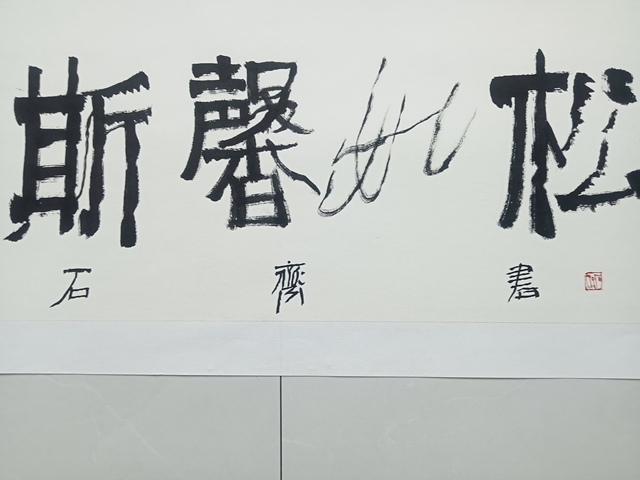 斯馨如松
石齊書